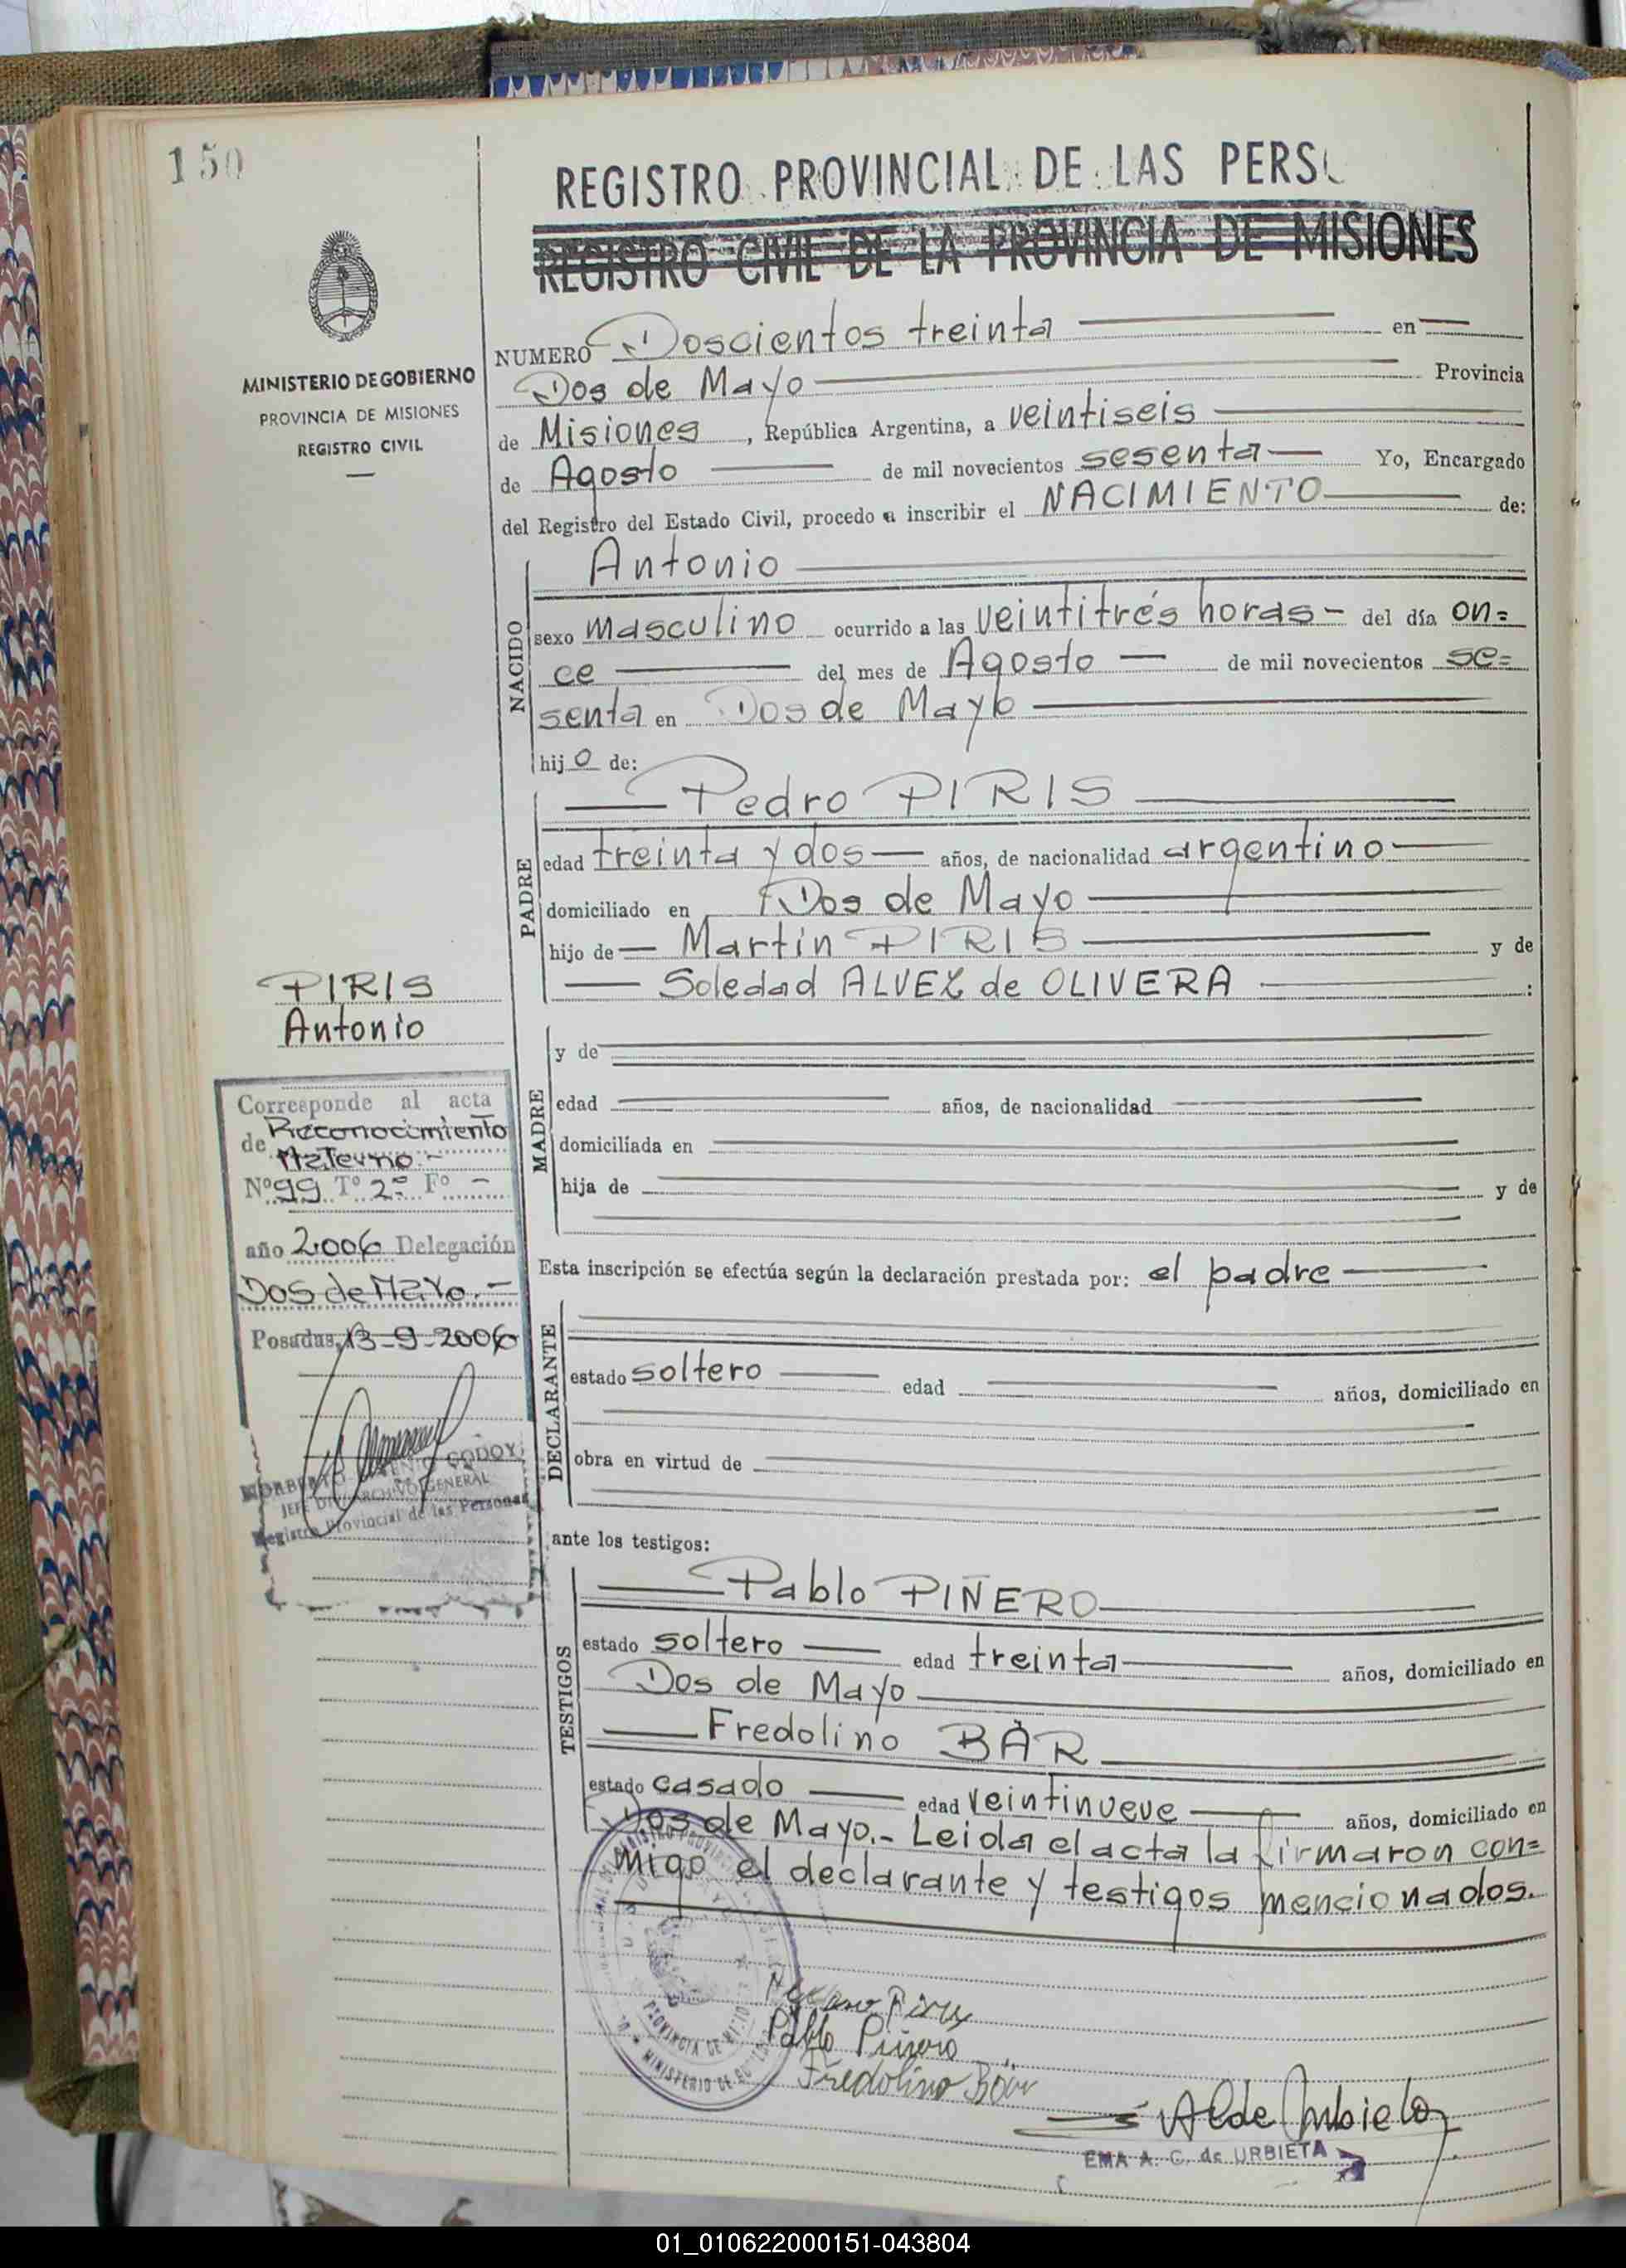 150
REGISTRO PROVINCIAL DE LAS PERS
REGISTRO CIVIL DE LA PROVINCIA DE MISIONES
MINISTERIO DE GOBIERNO
PROVINCIA DE MISIONES
REGISTRO CIVIL
NUMERO Doscientos treinta en
Dos de Mayo Provincia
de Misiones, República Argentina, a veintiseis
de Agosto de mil novecientos sesenta Yo, Encargado
del Registro del Estado Civil, procedo a inscribir el NACIMIENTO de:
NACIDO
Antonio
sexo masculino ocurrido a las veintitrés horas - del día on=
ce del mes de Agosto de mil novecientos se=
senta en Dos de Mayo
hijo de:
PADRE
Pedro PIRIS
edad treinta y dos años, de nacionalidad argentino
domiciliado en Dos de Mayo
hijo de Martin PIRIS y de
Soledad ALVEZ de OLIVERA :
PIRIS
Antonio
MADRE
y de
edad años, de nacionalidad
domiciliada en
hija de y de
Corresponde al acta
de Reconocimiento
Materno.-
Nº 99 Tº 2º Fº -
año 2006 Delegación
Dos de Mayo.-
Posadas, 13-9-2006
GODOY
JEFE ARCHIVO GENERAL
Registro Provincial de las Personas
Esta inscripción se efectúa según la declaración prestada por: el padre
DECLARANTE
estado soltero edad años, domiciliado en
obra en virtud de
ante los testigos:
TESTIGOS
Pablo PIÑERO
estado soltero edad treinta años, domiciliado en
Dos de Mayo
Fredolino BÄR
estado casado edad veintinueve años, domiciliado en
Dos de Mayo.- Leida el acta la firmaron con=
migo el declarante y testigos mencionados.
PROVINCIA DE MISIONES
MINISTERIO DE GOBIERNO
Pablo Piñero
Fredolino Bär
EMA A. C. de URBIETA
01_010622000151-043804